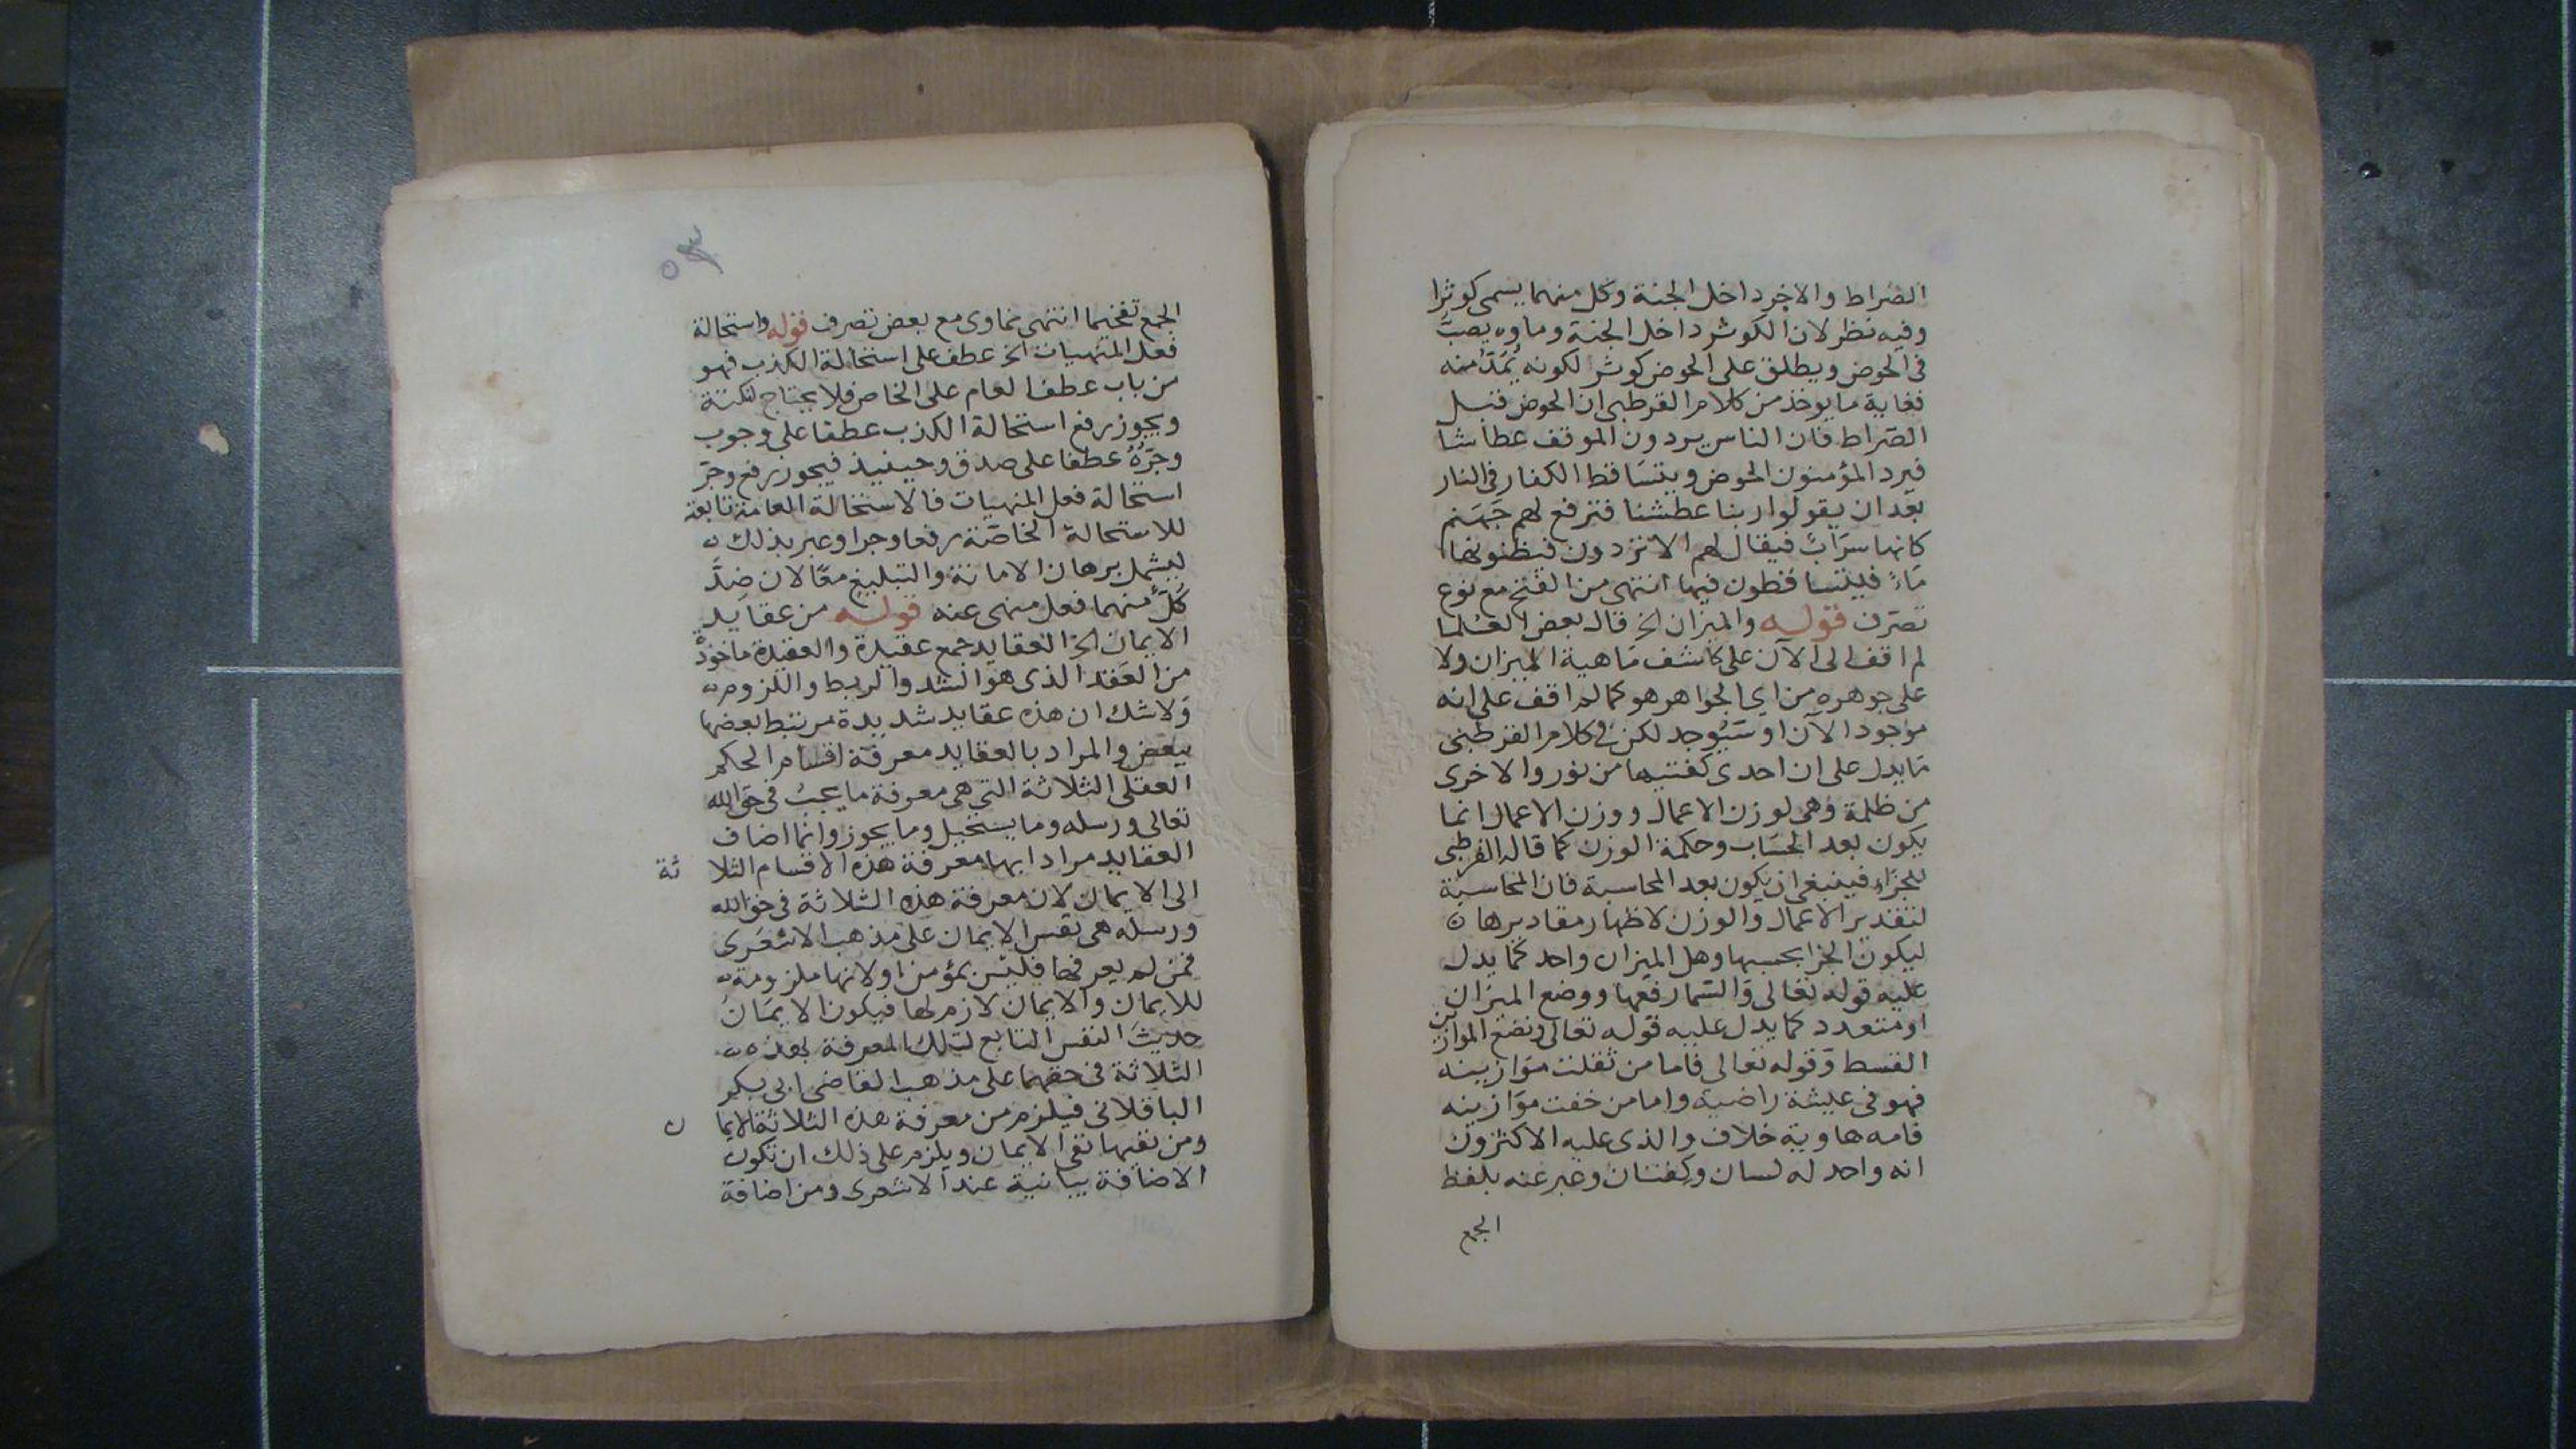 الصراط والاخر داخل الجنة وكل منهما يسمى كوثرا
وفيه نظر لان الكوثر داخل الجنة وماوه يصب
فى الحوض ويطلق على الحوض كوثر لكونه يُمَدّ منه
فغاية ما يوخذ من كلام القرطبى ان الحوض قبل
الصراط فان الناس يردون الموقف عطاشا
فيرد المؤمنون الحوض ويتساقط الكفار فى النار
بعد ان يقولوا ربنا عطشنا فترفع لهم جهنم
كانها سراب فيقال لهم الا تردون فيظنونها
ماء فيتساقطون فيها انتهى من الفتح مع نوع
تصرف قوله والميزان الخ قال بعض العلما
لم اقف الى الآن على كاشف ماهية الميزان ولا
على جوهره من اي الجواهر هو كما لم اقف على انه
موجود الآن او سيوجد لكن فى كلام القرطبى
ما يدل على ان احدى كفتيها من نور والاخرى
من ظلمة وهى لوزن الاعمال ووزن الاعمال انما
يكون بعد الحساب وحكمة الوزن كما قاله القرطبى
للجزاء فينبغى ان يكون بعد المحاسبة فان المحاسبة
لتقدير الاعمال والوزن لاظهار مقاديرها
ليكون الجزا بحسبها وهل الميزان واحد كما يدل
عليه قوله تعالى والسما رفعها ووضع الميزان
او متعدد كما يدل عليه قوله تعالى ونضع الموازين
القسط وقوله تعالى فاما من ثقلت موازينه
فهو فى عيشة راضية واما من خفت موازينه
فامه هاوية خلاف والذى عليه الاكثرون
انه واحد له لسان وكفتان وعبر عنه بلفظ
الجمع
الجمع تفخيما انتهى نماوى مع بعض تصرف قوله واستحالة
فعل المنهيات الخ عطف على استحالة الكذب فهو
من باب عطف العام على الخاص فلا يحتاج لنكتة
ويجوز رفع استحالة الكذب عطفا على وجوب
وجرّهُ عطفا على صدق وحينيذ فيجوز رفع وجرّ
استحالة فعل المنهيات فالاستحالة العامة تابعة
للاستحالة الخاصة رفعا وجرا وعبر بذلك
ليشمل برهان الامانة والتبليغ معًا لان ضدّ
كلّ منهما فعل منهى عنه قوله من عقايد
الايمان الخ العقايد جمع عقيدة والعقيدة ماخوذة
من العقد الذى هو الشد والربط واللزوم
ولاشك ان هذه عقايد شديدة مرتبط بعضها
ببعض والمراد بالعقايد معرفة اقسام الحكم
العقلى الثلاثة التى هى معرفة ما يجب فى حق الله
تعالى ورسله وما يستحيل وما يجوز وانما اضاف
العقايد مرادا بها معرفة هذه الاقسام الثلاثة
الى الايمان لان معرفة هذه الثلاثة فى حق الله
ورسله هى نفس الايمان على مذهب الاشعرى
فمن لم يعرفها فليس بمؤمن او لانها ملزومة
للايمان والايمان لازم لها فيكون الايمان
حديث النفس التابع لتلك المعرفة بهذه
الثلاثة فى حقهما على مذهب القاضى ابى بكر
الباقلانى فيلزم من معرفة هذه الثلاثة الايمان
ومن نفيها نفى الايمان ويلزم على ذلك ان تكون
الاضافة بيانية عند الاشعرى ومن اضافة